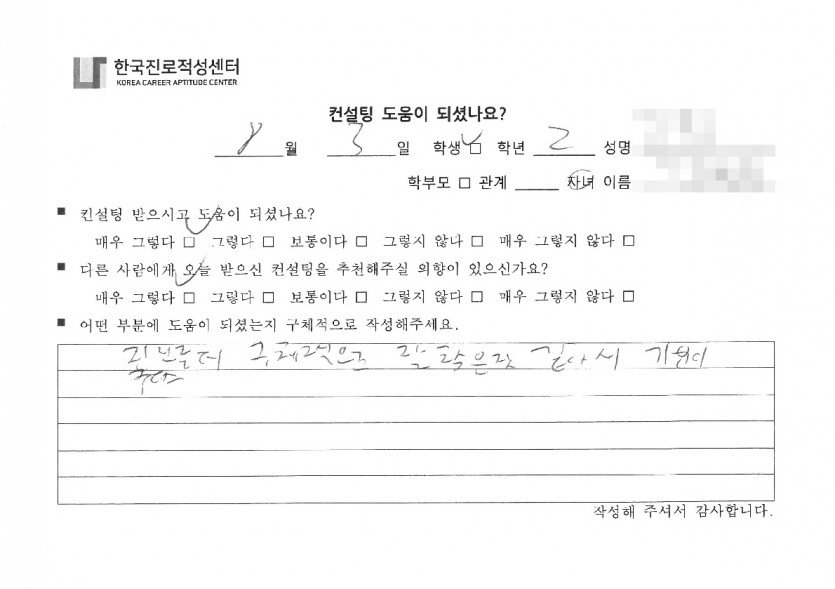 한국진로적성센터
KOREA CAREER APTITUDE CENTER
컨설팅 도움이 되셨나요?
8 월 3 일 학생 □ 학년 2 성명
학부모 □ 관계 자녀 이름
■ 컨설팅 받으시고 도움이 되셨나요?
매우 그렇다 □ 그렇다 □ 보통이다 □ 그렇지 않다 □ 매우 그렇지 않다 □
■ 다른 사람에게 오늘 받으신 컨설팅을 추천해주실 의향이 있으신가요?
매우 그렇다 □ 그렇다 □ 보통이다 □ 그렇지 않다 □ 매우 그렇지 않다 □
■ 어떤 부분에 도움이 되셨는지 구체적으로 작성해주세요.
구체적으로 잘 같아서
작성해 주셔서 감사합니다.